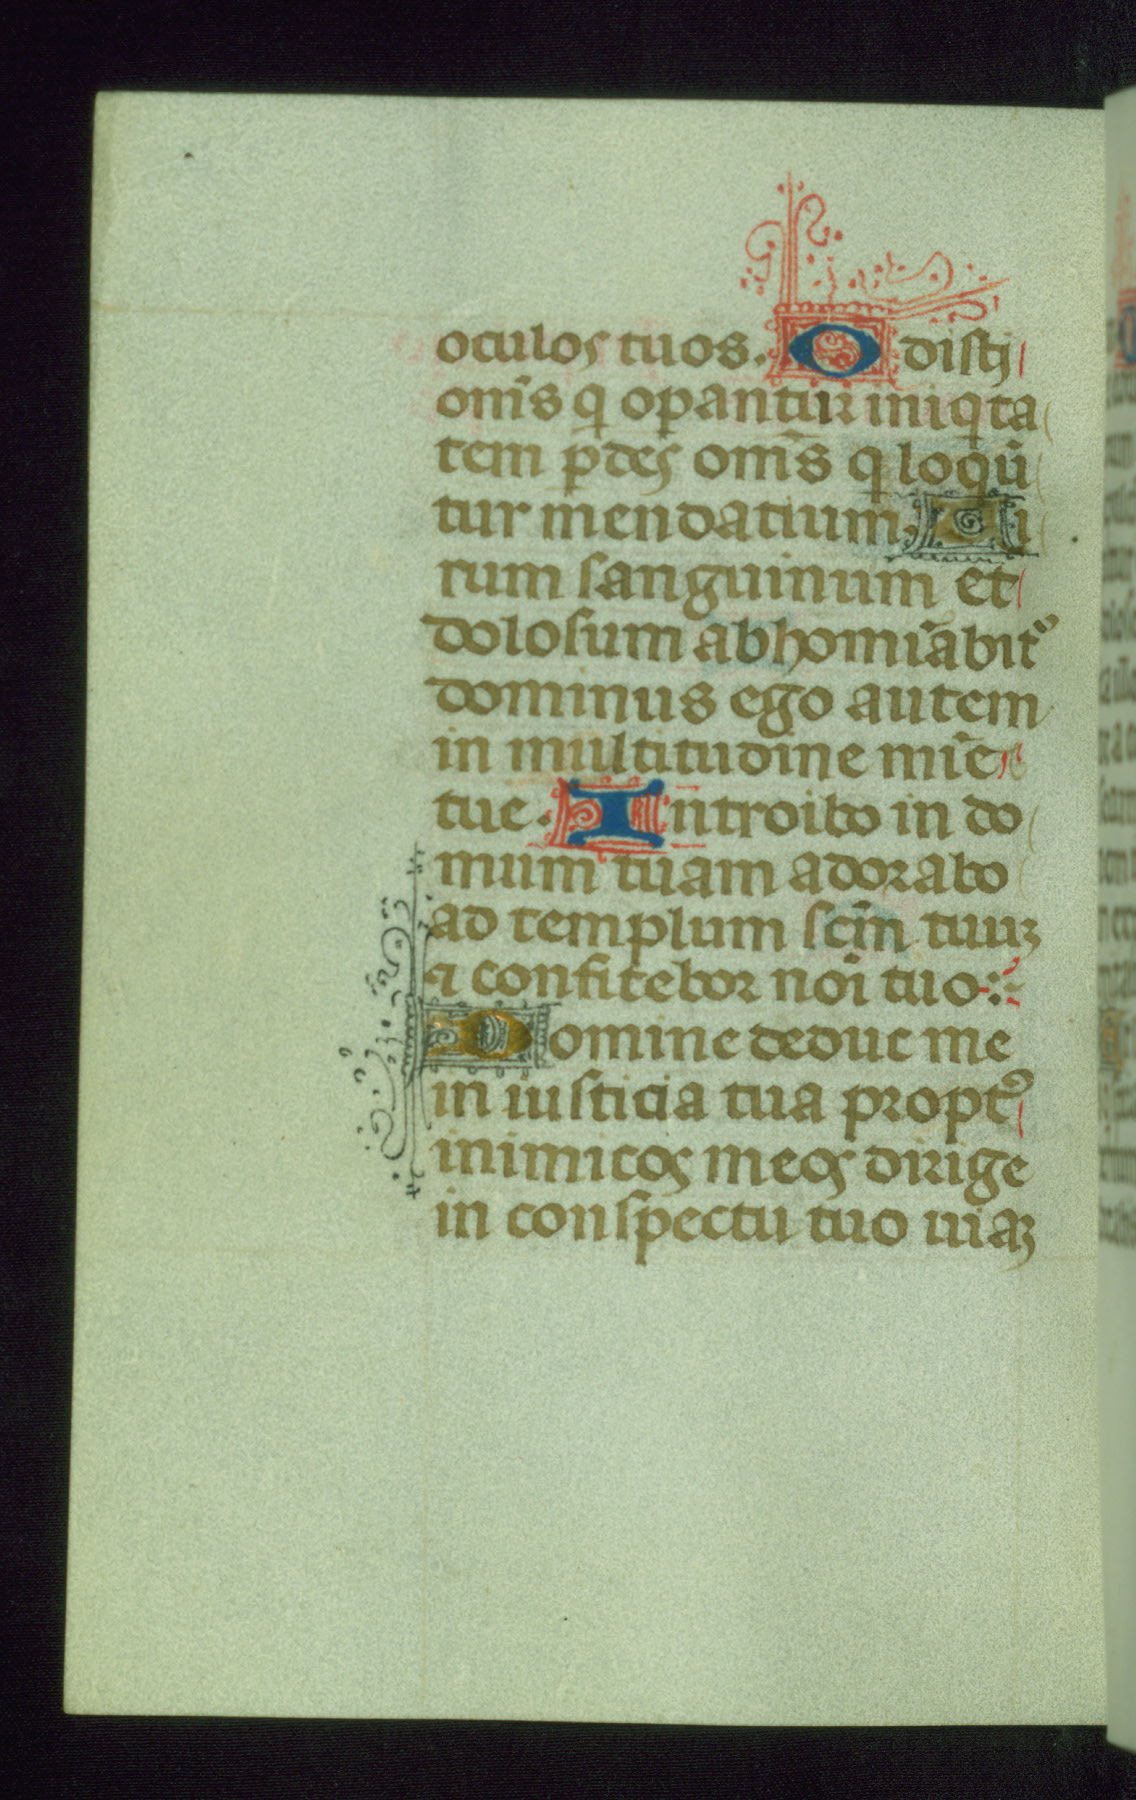 oculos tuos. Odisti
om̄s q opantur iniqta
tem pdes om̄s q loqū
tur mendatium. Ui
rum sanguinum et
dolosum abhomīabit᷑
dominus ego autem
in multitudine mīe
tue. Introibo in do
mum tuam adorabo
ad templum scm̄ tuuꝫ
⁊ confitebor noī tuo:
Domine deduc me
in iusticia tua propt᷑
inimicos meos dirige
in conspectu tuo uiaꝫ